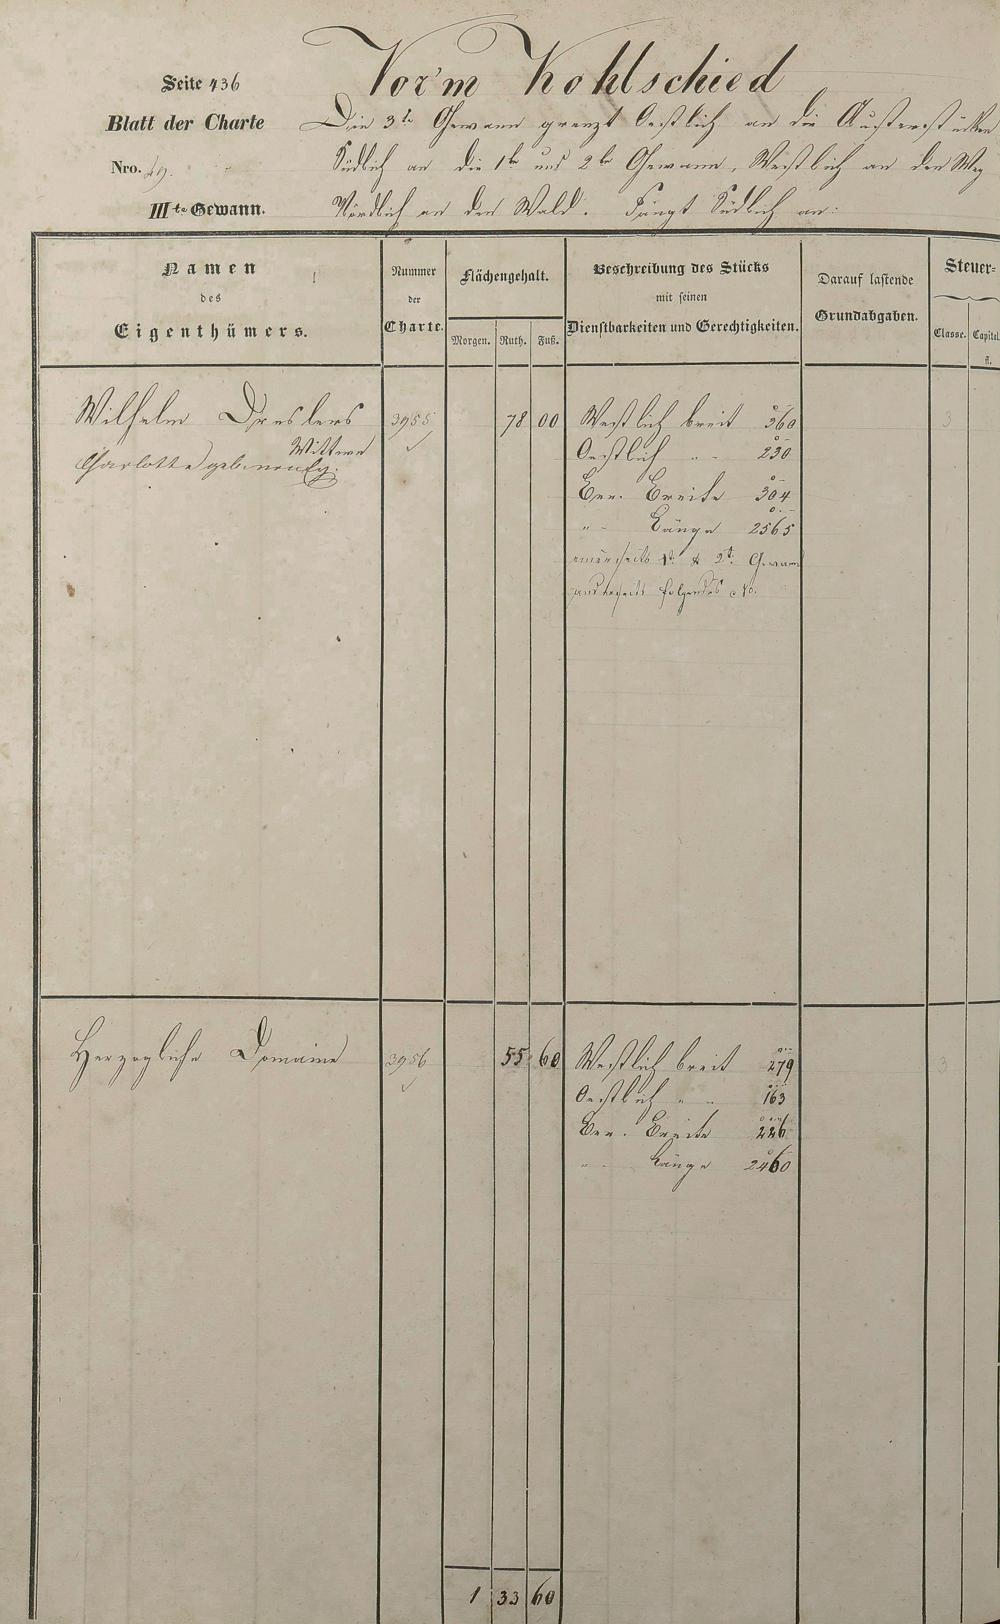 Vor'm Kohlschied
Seite 436
Blatt der Charte
Nro. 49.
IIIte Gewann.
Die 3te Gewann grenzt Oestlich an die
Südlich an die 1te und 2te Gewann, Westlich an den Weg
Nördlich an den Wald. Fängt Südlich an:
Namen
des
Eigenthümers.
Nummer
der
Charte.
Flächengehalt.
Morgen. Ruth. Fuß.
Beschreibung des Stücks
mit seinen
Dienstbarkeiten und Gerechtigkeiten.
Darauf lastende
Grundabgaben.
Steuer-
Classe. Capital.
fl.
Wilhelm Dreslers 3955 78 00 Westlich breit 360 3
Wittwe
Charlotte geborene
Oestlich " 230
Ber. Breite 304
" Länge 2565
einerseits 1t & 2t Gewann
anderseits folgendes No.
Herzogliche Domaine 3956 55 60 Westlich breit 279 3
Oestlich " " 163
Ber. Breite 226
" Länge 2460
1 33 60